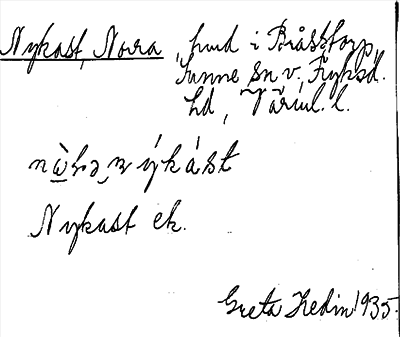 Nykast, Norra, hmd i Bråstorp,
Sunne sn v, Fryksd.
hd, Värml. l.
nýkást
Nykast ek.
Greta Hedin 1935.